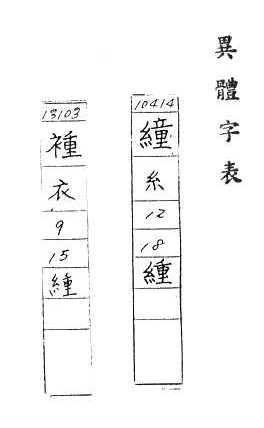 異體字表
10414
䌬
糸
12
18
緟
13103
褈
衣
9
15
緟